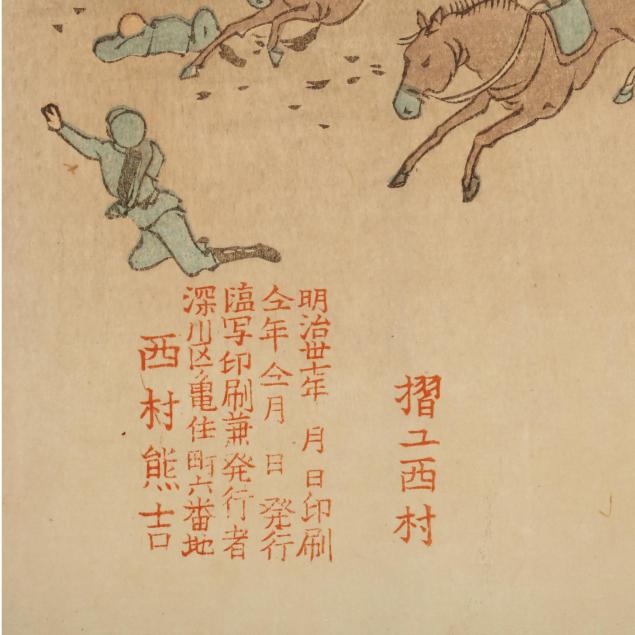 摺工西村
明治丗七年 月 日印刷
仝年仝月 日 発行
臨写印刷兼発行者
深川区亀住町六番地
西村熊吉